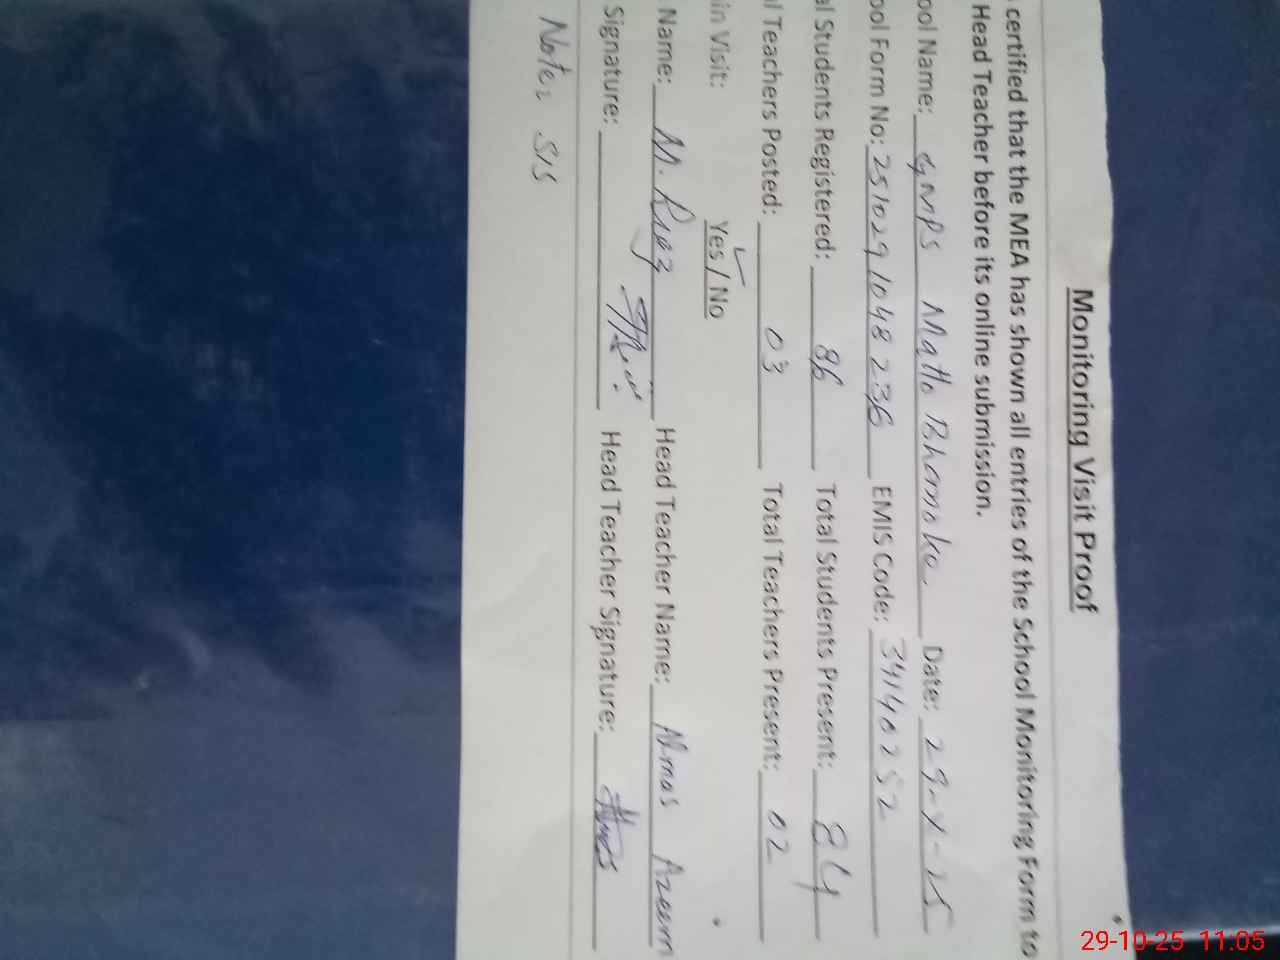 Monitoring Visit Proof
certified that the MEA has shown all entries of the School Monitoring Form to
Head Teacher before its online submission.
ool Name: GMPS Matto Bhamaka Date: 29-X-25
ool Form No: 251029 1048 236 EMIS Code: 34140252
al Students Registered: 86 Total Students Present: 84
al Teachers Posted: 03 Total Teachers Present: 02
in Visit: Yes / No
Name: M. Riaz Head Teacher Name: Almas Azeem
Signature: Head Teacher Signature: Almas
Note: SIS
29-10-25 11:05